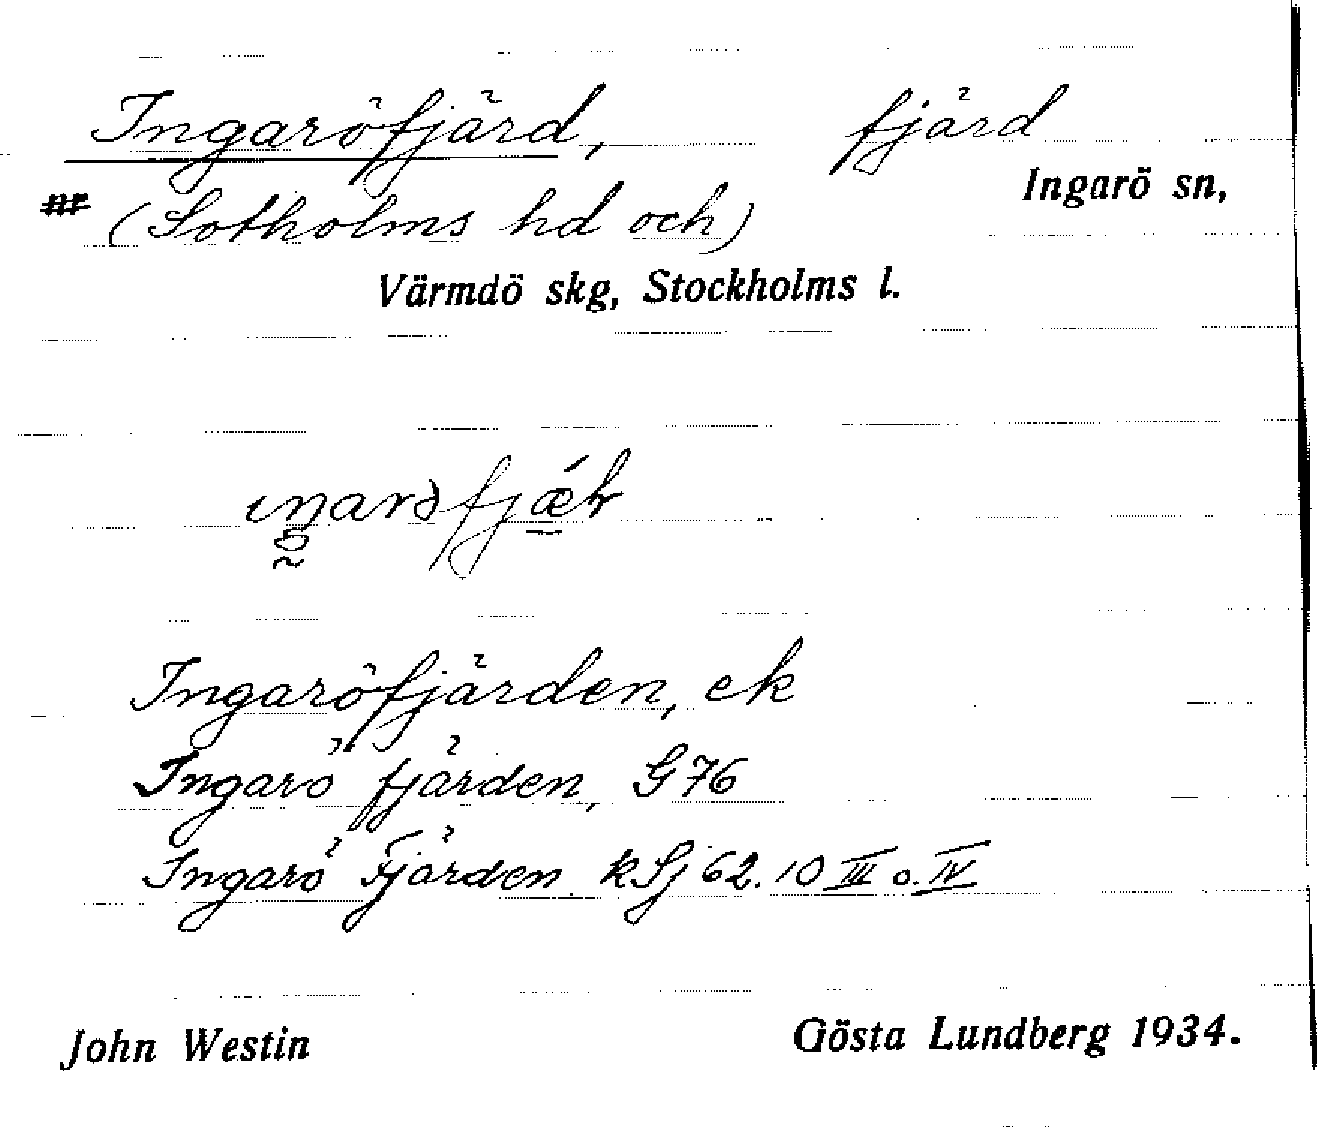 Ingaröfjärd, fjärd
Ingarö sn,
(Sotholms hd och)
Värmdö skg, Stockholms l.
Ingaröfjärden, ek
Ingarö fjärden, G76
Ingarö Fjärden kSj 62. 10 III o. IV
John Westin
Gösta Lundberg 1934.